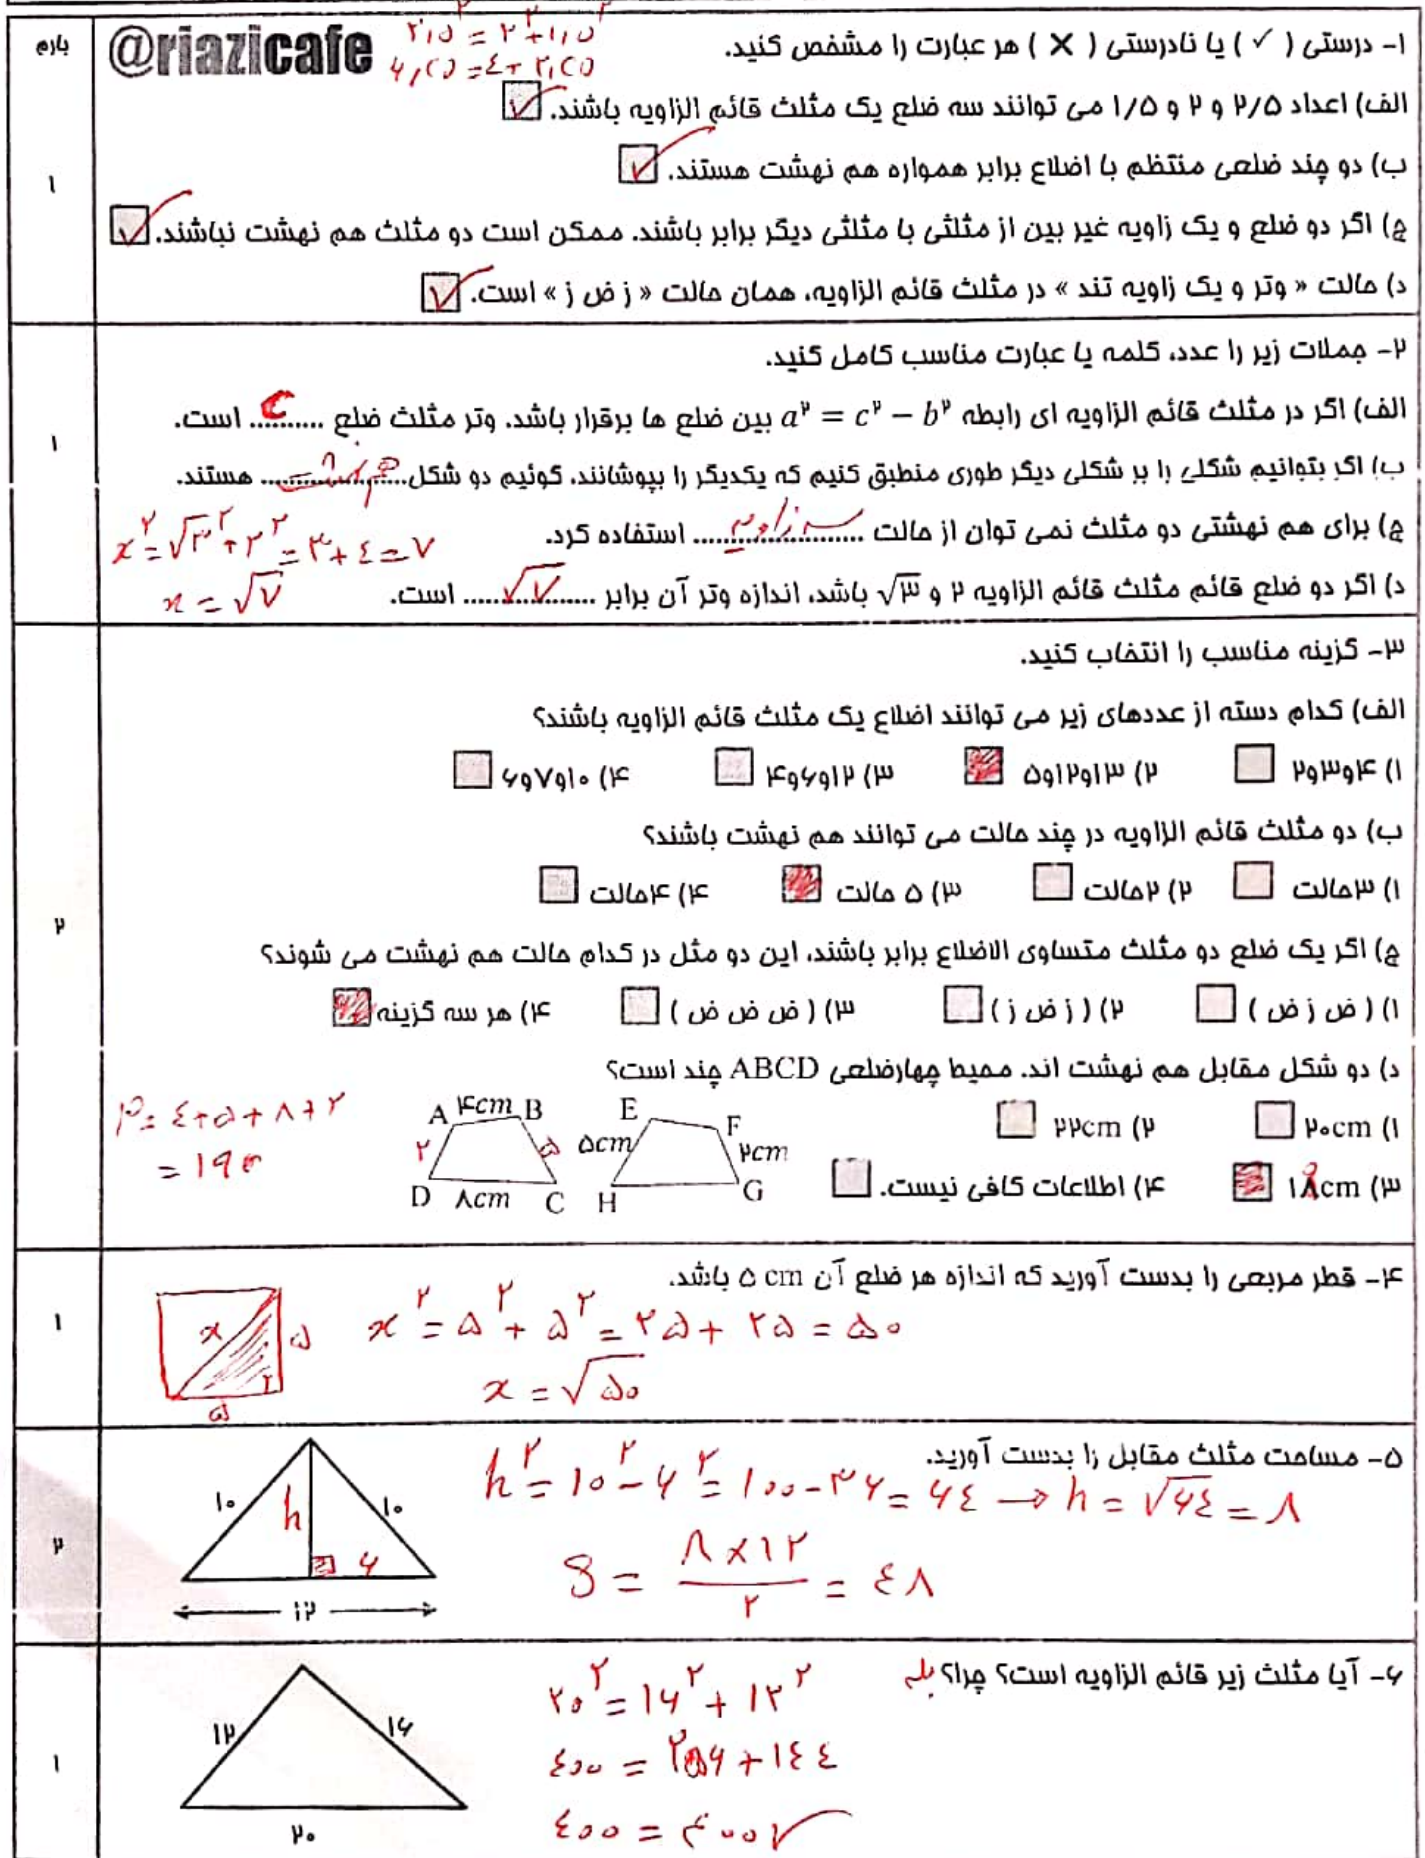 بارم
@riazicafe
۲٫۵^۲ = ۲^۲ + ۱٫۵^۲
۶٫۲۵ = ۴ + ۲٫۲۵
۱- درستی ( ✓ ) یا نادرستی ( ✗ ) هر عبارت را مشخص کنید.
الف) اعداد ۲/۵ و ۲ و ۱/۵ می توانند سه ضلع یک مثلث قائم الزاویه باشند. ✓
ب) دو چند ضلعی منتظم با اضلاع برابر همواره هم نهشت هستند. ✓
ج) اگر دو ضلع و یک زاویه غیر بین از مثلثی با مثلثی دیگر برابر باشند. ممکن است دو مثلث هم نهشت نباشند. ✓
د) حالت « وتر و یک زاویه تند » در مثلث قائم الزاویه، همان حالت « ز ض ز » است. ✓
۱
۲- جملات زیر را عدد، کلمه یا عبارت مناسب کامل کنید.
الف) اگر در مثلث قائم الزاویه ای رابطه a^۲ = c^۲ − b^۲ بین ضلع ها برقرار باشد. وتر مثلث ضلع ...c... است.
ب) اگر بتوانیم شکلی را بر شکلی دیگر طوری منطبق کنیم که یکدیگر را بپوشانند. گوئیم دو شکل ...هم نهشت... هستند.
ج) برای هم نهشتی دو مثلث نمی توان از حالت ...سه زاویه... استفاده کرد.
د) اگر دو ضلع قائم مثلث قائم الزاویه ۲ و √۳ باشد، اندازه وتر آن برابر ...√۷... است.
x^۲ = √۳^۲ + ۲^۲ = ۳ + ۴ = ۷
x = √۷
۱
۳- گزینه مناسب را انتخاب کنید.
الف) کدام دسته از عددهای زیر می توانند اضلاع یک مثلث قائم الزاویه باشند؟
۱) ۴و۳و۲ ۲) ۱۳و۱۲و۵ ۳) ۱۲و۶و۴ ۴) ۱۰و۷و۶
ب) دو مثلث قائم الزاویه در چند حالت می توانند هم نهشت باشند؟
۱) ۳حالت ۲) ۲حالت ۳) ۵ حالت ۴) ۴حالت
ج) اگر یک ضلع دو مثلث متساوی الاضلاع برابر باشند، این دو مثل در کدام حالت هم نهشت می شوند؟
۱) ( ض ز ض ) ۲) ( ز ض ز ) ۳) ( ض ض ض ) ۴) هر سه گزینه
د) دو شکل مقابل هم نهشت اند. محیط چهارضلعی ABCD چند است؟
۱) ۲۰cm ۲) ۲۲cm
۳) ۱۹cm ۴) اطلاعات کافی نیست.
A ۴cm B
۲ ۵
D ۸cm C
E F
۵cm ۲cm
H G
P = ۴ + ۵ + ۸ + ۲
= ۱۹
۲
۴- قطر مربعی را بدست آورید که اندازه هر ضلع آن ۵ cm باشد.
x ۵
۵
x^۲ = ۵^۲ + ۵^۲ = ۲۵ + ۲۵ = ۵۰
x = √۵۰
۱
۵- مساحت مثلث مقابل را بدست آورید.
h^۲ = ۱۰^۲ − ۶^۲ = ۱۰۰ − ۳۶ = ۶۴ → h = √۶۴ = ۸
S = ۸ × ۱۲ / ۲ = ۴۸
۱۰ h ۱۰
۶
۱۲
۲
۶- آیا مثلث زیر قائم الزاویه است؟ چرا؟ بله
۲۰^۲ = ۱۶^۲ + ۱۲^۲
۴۰۰ = ۲۵۶ + ۱۴۴
۴۰۰ = ۴۰۰ ✓
۱۲ ۱۶
۲۰
۱